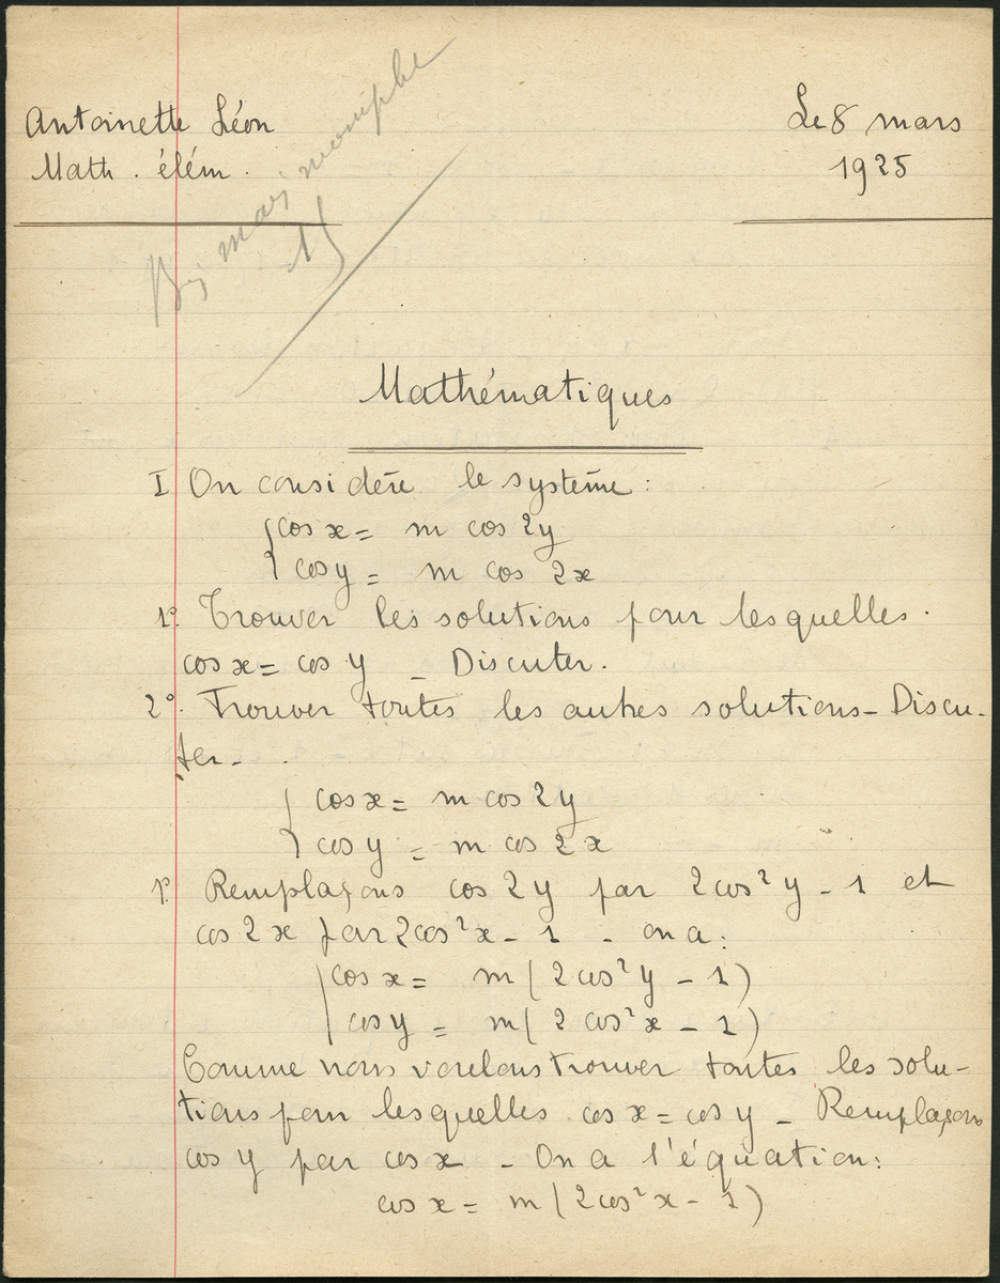 Antoinette Léon
Math. élém.
Le 8 mars
1925
15
Mathématiques
I On considère le système :
cos x = m cos 2y
cos y = m cos 2x
1º. Trouver les solutions pour lesquelles.
cos x = cos y _ Discuter.
2º. Trouver toutes les autres solutions _ Discu-
ter _ .
cos x = m cos 2y
cos y = m cos 2x
1º. Remplaçons cos 2y par 2cos² y - 1 et
cos 2x par 2cos² x - 1 - on a :
cos x = m ( 2 cos² y - 1 )
cos y = m ( 2 cos² x - 1 )
Comme nous voulons trouver toutes les solu-
tions pour lesquelles cos x = cos y _ Remplaçons
cos y par cos x _ On a l'équation :
cos x = m ( 2 cos² x - 1 )